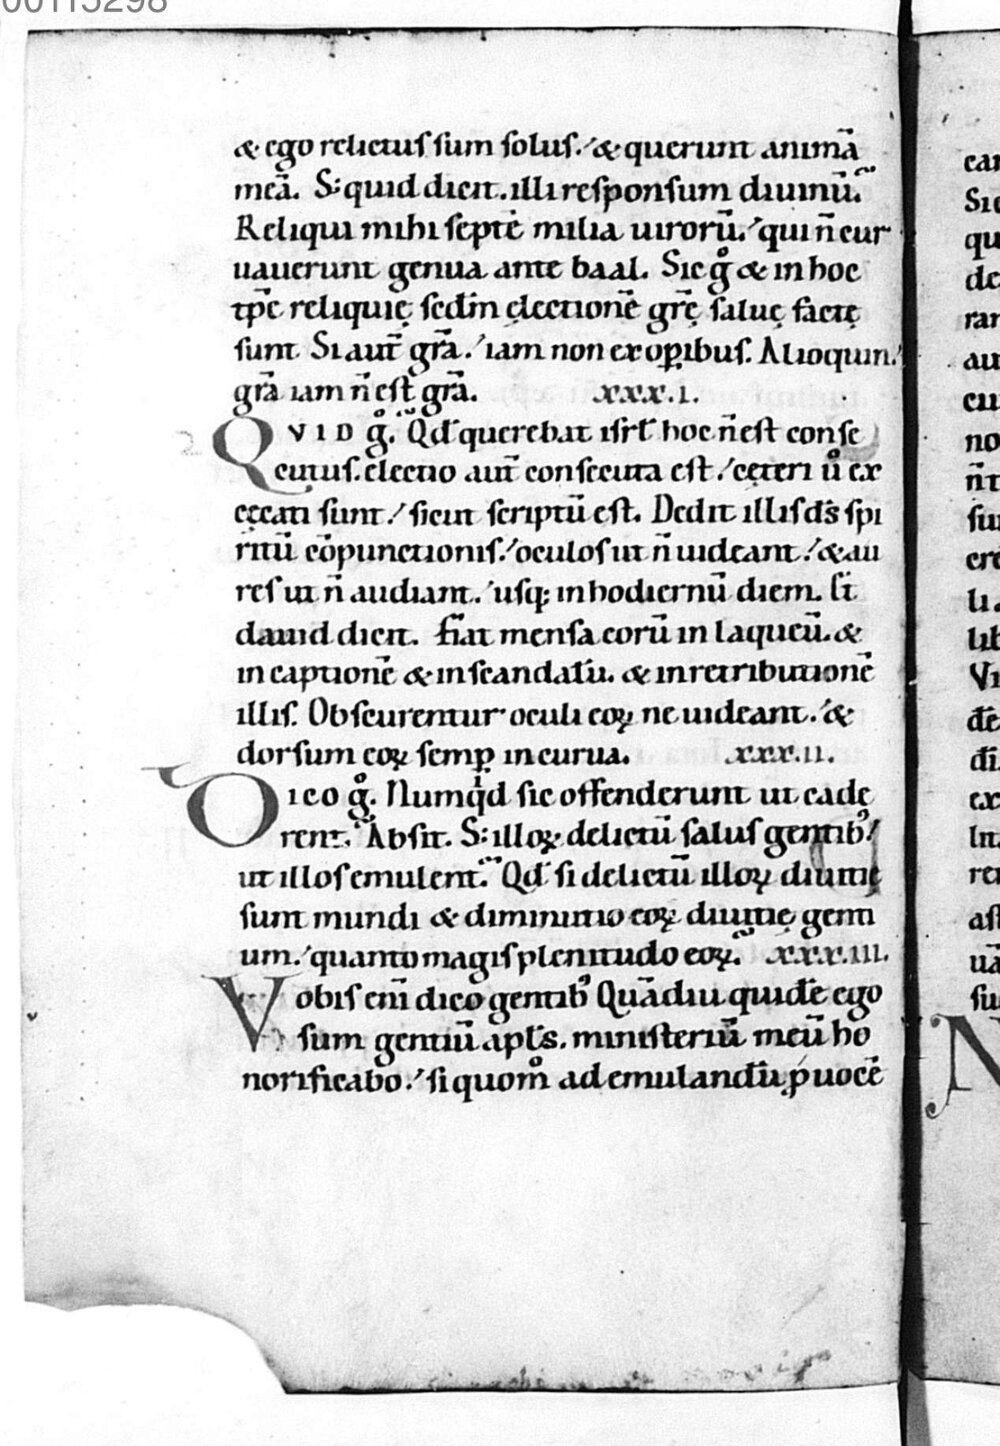 00115298
& ego relictus sum solus. & querunt animā
meā. S; quid dicit. illi responsum diuinū.
Reliqui mihi septē milia uirorū. qui n̄ cur
uauerunt genua ante baal. Sic gͦ & in hoc
tp̄e reliquię sc̄dm ęlectionē gr̄ę saluę factę
sunt. Si aut̄ gr̄a. iam non ex oꝑibus. Alioquin
gr̄a iam n̄ est gr̄a. xxx.i.
QVID gͦ. Qd̄ querebat isrł hoc n̄ est conse
cutus. electio aut̄ consecuta est. cęteri uͦ ex
cęcati sunt. sicut scriptū est. Dedit illis dс̄ spi
ritū cōpunctionis. oculos ut n̄ uideant. & au
res ut n̄ audiant. usq; in hodiernū diem. Et
dauid dicit. Fiat mensa eorū in laqueū. &
in captionē & in scandalū. & in retributionē
illis. Obscurentur oculi eoꝝ ne uideant. &
dorsum eoꝝ semꝑ incurua. xxx.ii.
Dico gͦ. Numqͥd sic offenderunt ut cade
rent. Absit. S; illoꝝ delictū salus gentibꝰ
ut illos emulent̄. Qd̄ si delictū illoꝝ diuitię
sunt mundi & diminutio eoꝝ diuitię genti
um. quanto magis plenitudo eoꝝ. xxx.iii.
Vobis eni̅ dico gentibꝰ Quādiu quidē ego
sum gentiū apłs. ministeriū meū ho
norificabo. si quomͦ ad emulandū ꝓuocē